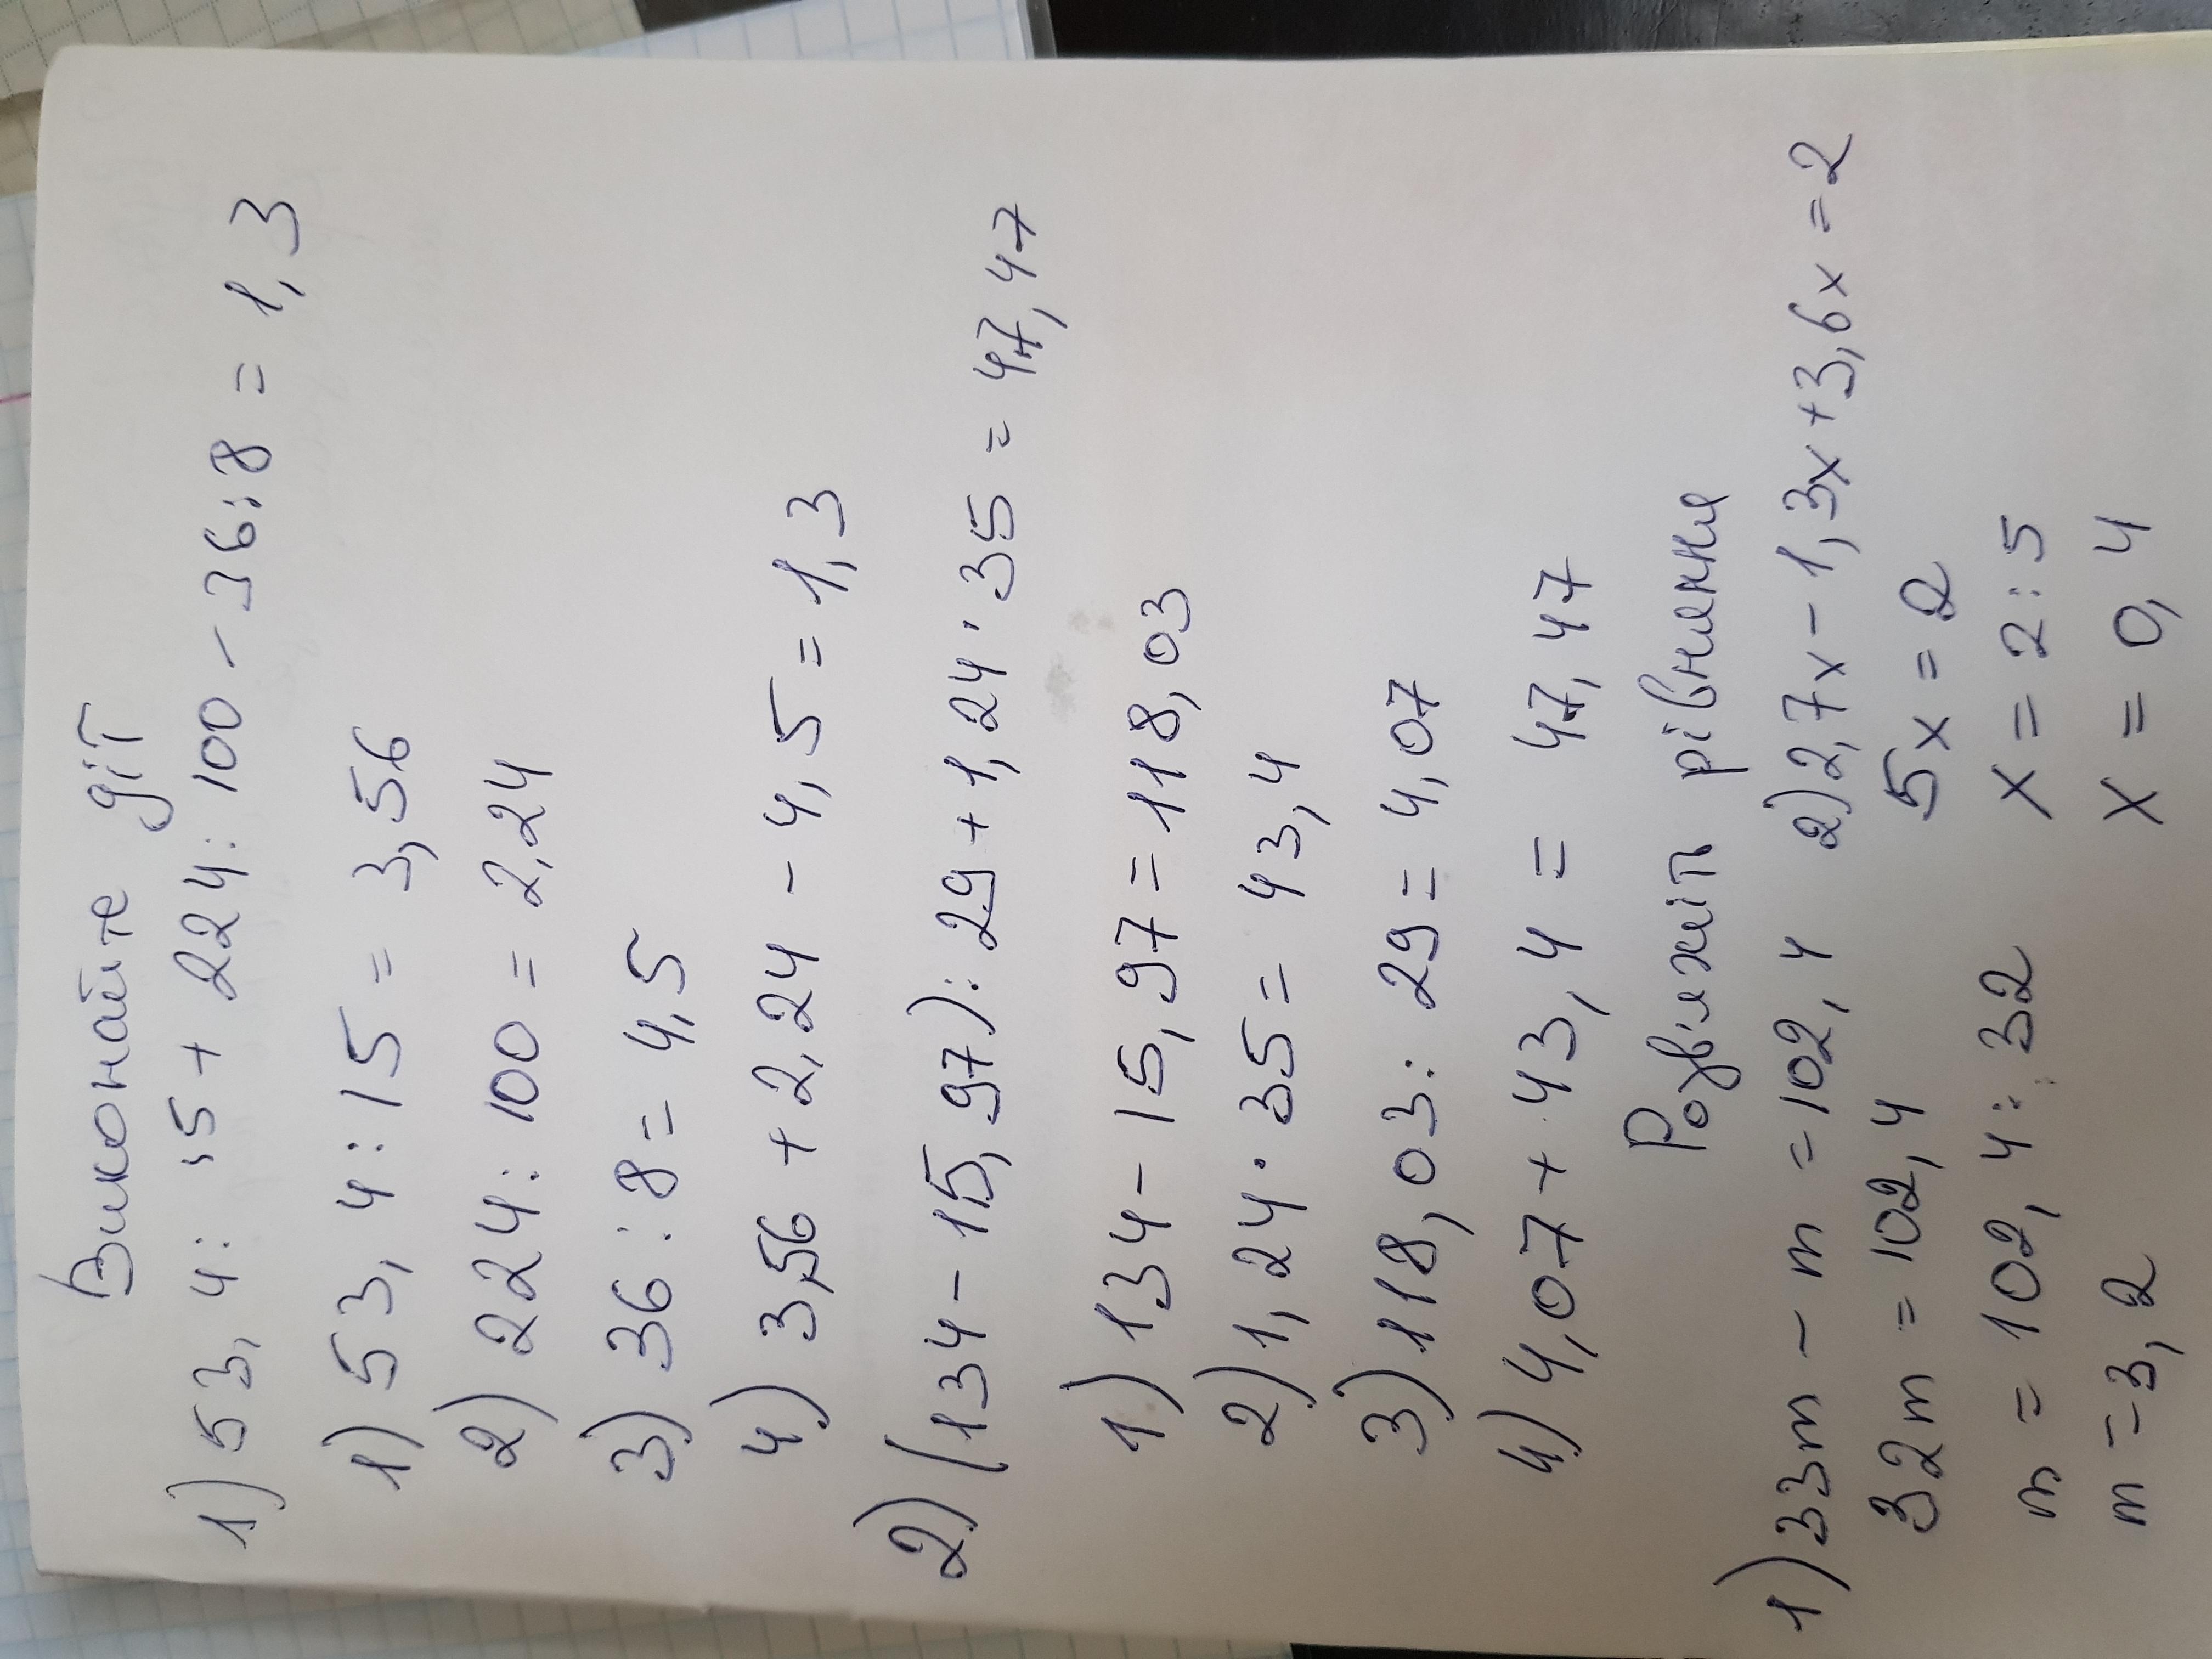 Виконайте дії
1) 53,4:15+224:100-36:8=1,3
1) 53,4:15=3,56
2) 224:100=2,24
3) 36:8=4,5
4) 3,56+2,24-4,5=1,3
2) (134-15,97):29+1,24·35=47,47
1) 134-15,97=118,03
2) 1,24·35=43,4
3) 118,03:29=4,07
4) 4,07+43,4=47,47
Розвіяжіт рівняння
1) 33m-m=102,4 2) 2,7x-1,3x+3,6x=2
32m=102,4 5x=2
m=102,4:32 x=2:5
m=3,2 x=0,4